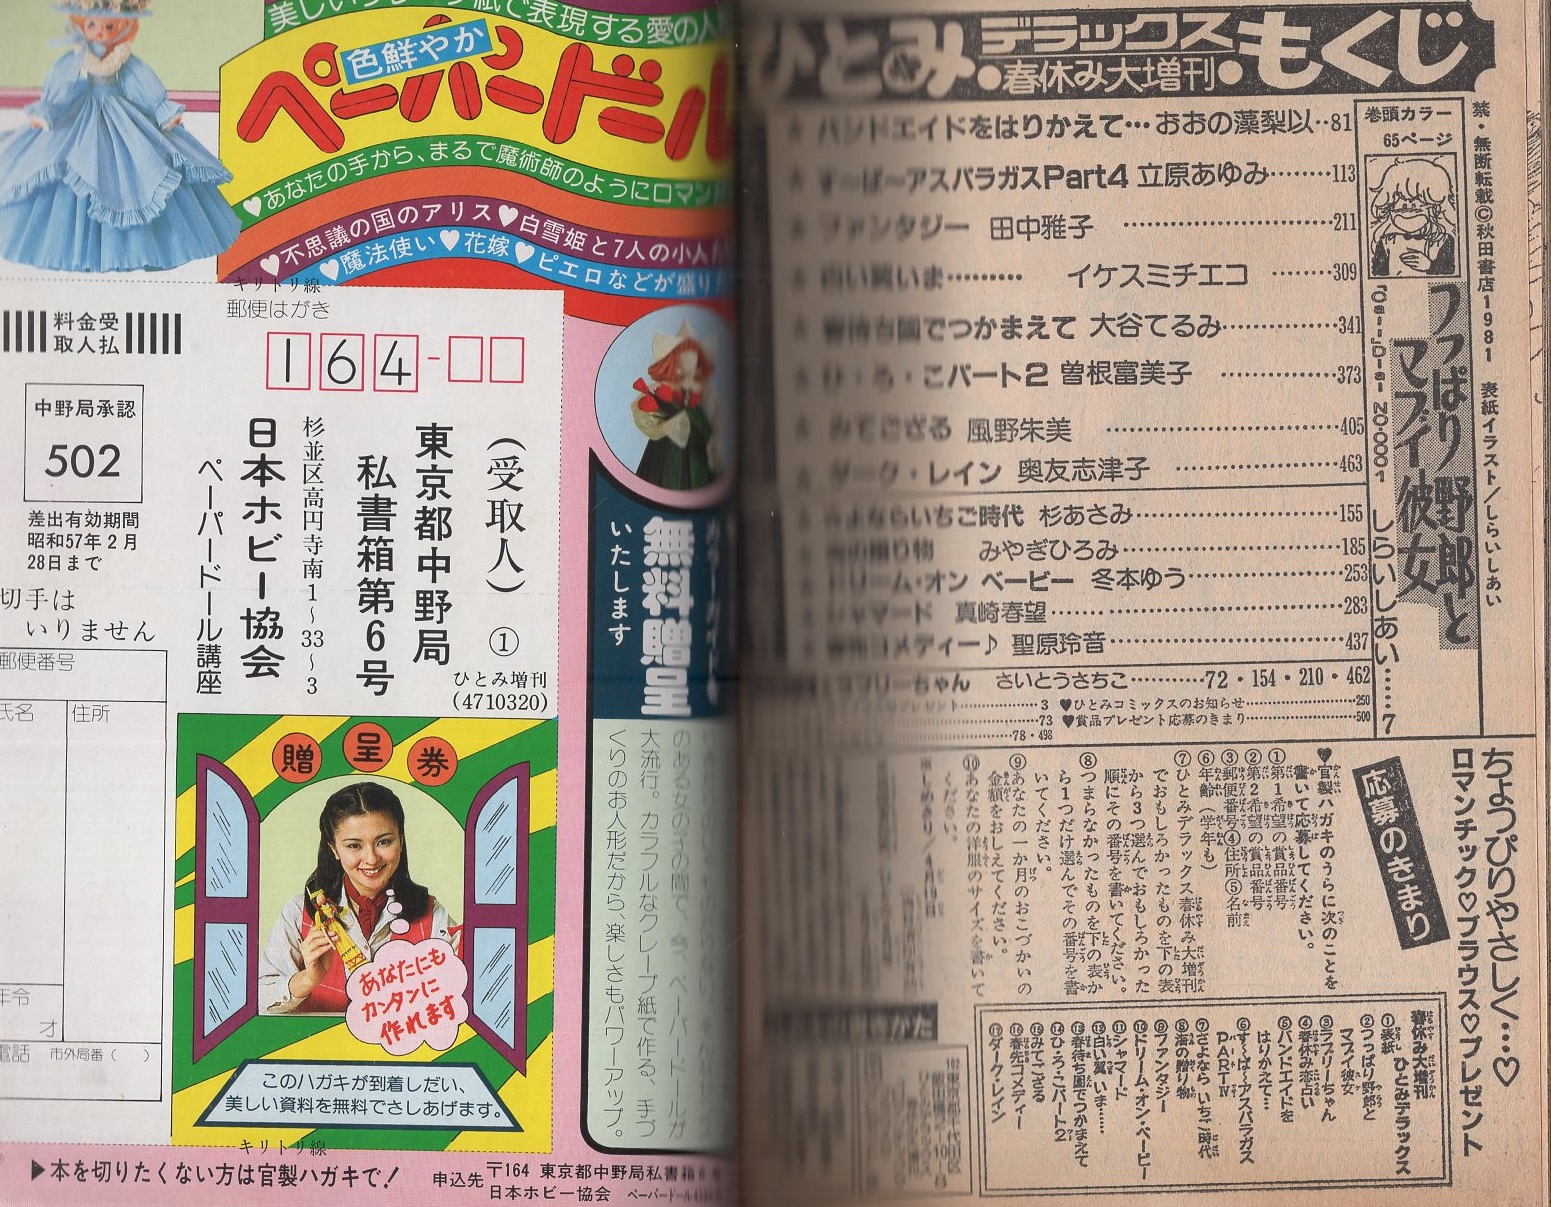 美しい
紙で表現する愛の人
色鮮やか
ペーパードール
♥あなたの手から、まるで魔術師のようにロマン
♥不思議の国のアリス♥白雪姫と7人の小人
♥魔法使い♥花嫁♥ピエロなどが盛り
キリトリ線
郵便はがき
料金受
取人払
164-
中野局承認
502
差出有効期間
昭和57年2月
28日まで
切手は
いりません
(受取人) ①
東京都中野局
私書箱第6号
杉並区高円寺南1〜33〜3
日本ホビー協会
ペーパードール講座
ひとみ増刊
(4710320)
郵便番号
氏名
住所
年令
才
電話 市外局番( )
贈呈券
あなたにも
カンタンに
作れます
このハガキが到着しだい、
美しい資料を無料でさしあげます。
キリトリ線
▶本を切りたくない方は官製ハガキで!
申込先
〒164 東京都中野局私書箱6
日本ホビー協会 ペーパードール
無料贈呈
いたします
のある女の子の間で、今、ペーパードールが
大流行。カラフルなクレープ紙で作る、手づ
くりのお人形だから、楽しさもパワーアップ。
ひとみ・デラックス春休み大増刊・もくじ
バンドエイドをはりかえて…おおの藻梨以‥81
す〜ぱ〜アスパラガスPart4 立原あゆみ……113
ファンタジー 田中雅子……211
白い翼いま……イケスミチエコ……309
春待ち園でつかまえて 大谷てるみ……341
ひ・ろ・こパート2 曽根富美子……373
みてござる 風野朱美……405
ダーク・レイン 奥友志津子……463
さよならいちご時代 杉あさみ……155
海の贈り物 みやぎひろみ……185
ドリーム・オン ベービー 冬本ゆう……253
シャマード 真崎春望……283
春先コメディー♪ 聖原玲音……437
ラブリーちゃん さいとうさちこ……72・154・210・462
プレゼント……3 ♥ひとみコミックスのお知らせ……250
……73 ♥賞品プレゼント応募のきまり……500
……78・498
巻頭カラー
65ページ
つっぱり野郎と
マブイ彼女
「Call」Dial NO.0001 しらいしあい……7
禁・無断転載©秋田書店1981 表紙イラスト/しらいしあい
ちょっぴりやさしく…♡
ロマンチック♡ブラウス♡プレゼント
応募のきまり
♥官製ハガキのうらに次のことを
書いて応募してください。
①第1希望の賞品番号
②第2希望の賞品番号
③郵便番号④住所⑤名前
⑥年齢(学年も)
⑦ひとみデラックス春休み大増刊
でおもしろかったものを下の表
から3つ選んでおもしろかった
順にその番号を書いてください。
⑧つまらなかったものを下の表か
ら1つだけ選んでその番号を書
いてください。
⑨あなたの一か月のおこづかいの
金額をおしえてください。
⑩あなたの洋服のサイズを書いて
ください。
※しめきり/4月19日
春休み大増刊
ひとみデラックス
①表紙
②つっぱり野郎と
マブイ彼女
③ラブリーちゃん
④春休み恋占い
⑤バンドエイドを
はりかえて…
⑥す〜ぱ〜アスパラガス
PARTⅣ
⑦さよならいちご時代
⑧海の贈り物
⑨ファンタジー
⑩ドリーム・オン・ベービー
⑪シャマード
⑫白い翼いま……
⑬春待ち園でつかまえて
⑭ひ・ろ・こパート2
⑮みてござる
⑯春先コメディー
⑰ダーク・レイン